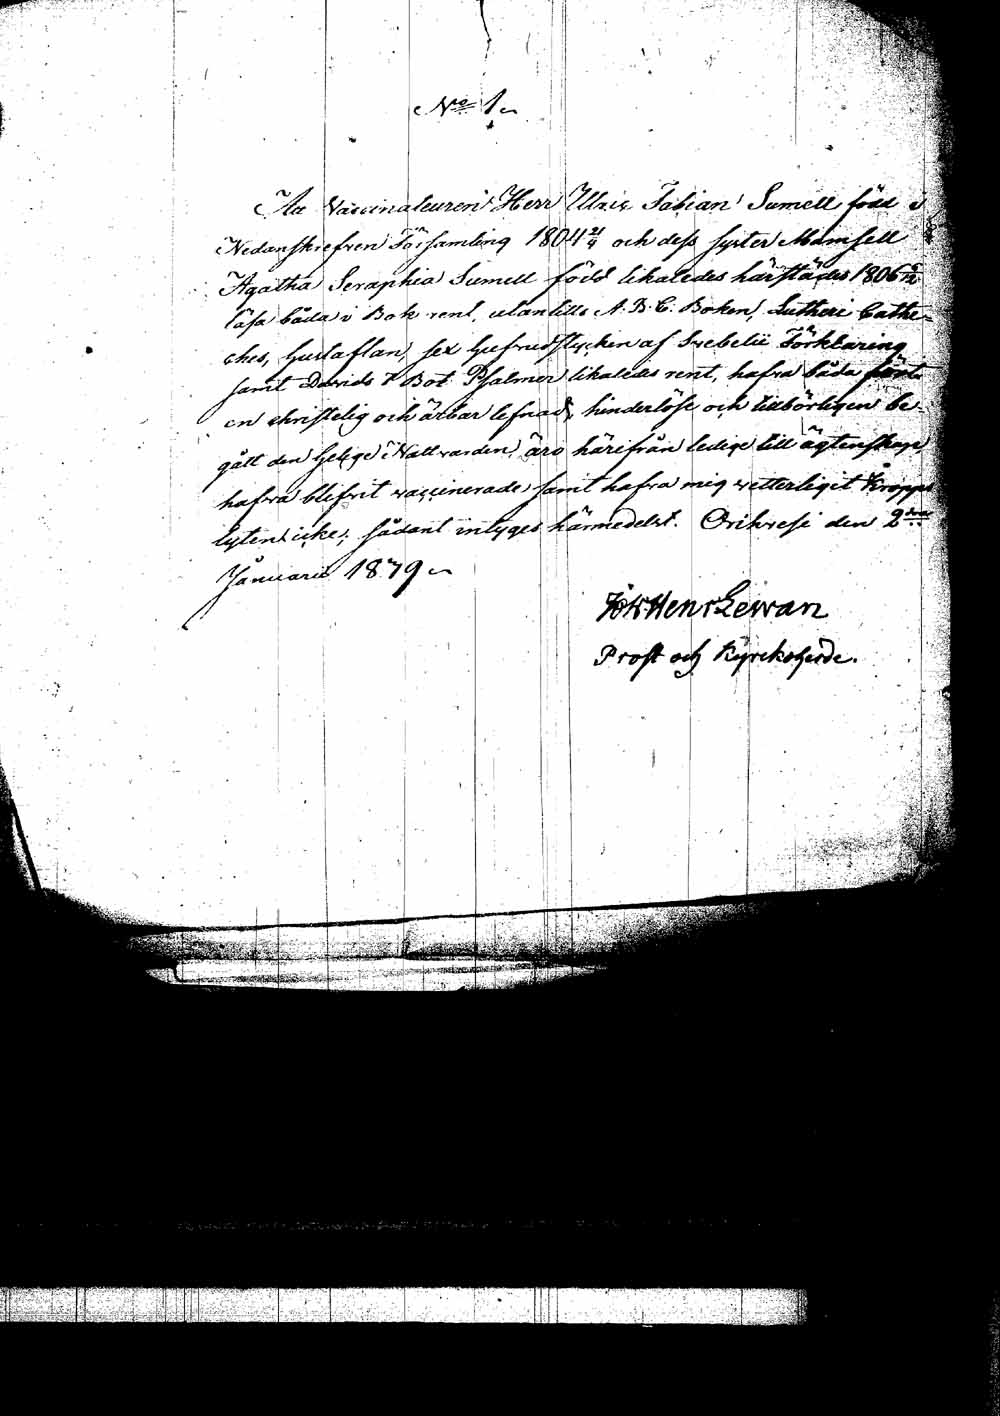 No 1
At Vaccinateuren Herr Ulric Fabian Sumell född i
Nedanskrefven Församling 1804 21/9 och dess syster Mamsell
Agatha Seraphia Sumell född likaledes härstädes 1806
läsa båda i Bok rent, utantille A.B.C. Boken, Lutheri Cathe-
ches, Hustaflan, sex hufvudstycken af Svebelii Förklaring
samt Davids 7 Bot Psalmer likaledes rent, hafva båda fördt
en christelig och ärbar lefnad, hinderlöse och tillbörligen be-
gått den helige Nattvarden, äro härifrån ledige till ägtenskap,
hafva blifvit vaccinerade samt hafva mig vetterligit Kropps
lyten icke; sådant intyges härmedelst. Orihvesi den 2
Januarii 1879
Henr Levvan
Prost och Kyrckoherde.